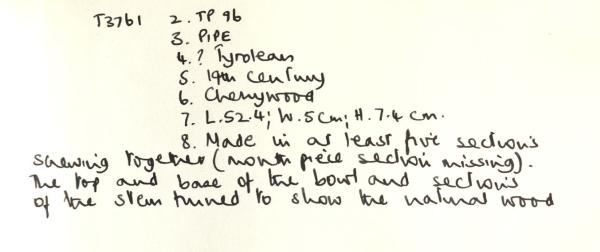 T3761 2. TP 96
3. PIPE
4. ? Tyrolean
5. 19th century
6. Cherrywood
7. L.52.4; W.5cm; H.7.4 cm.
8. Made in at least five sections
screwing together (mouth piece section missing).
The top and base of the bowl and sections
of the stem turned to show the natural wood